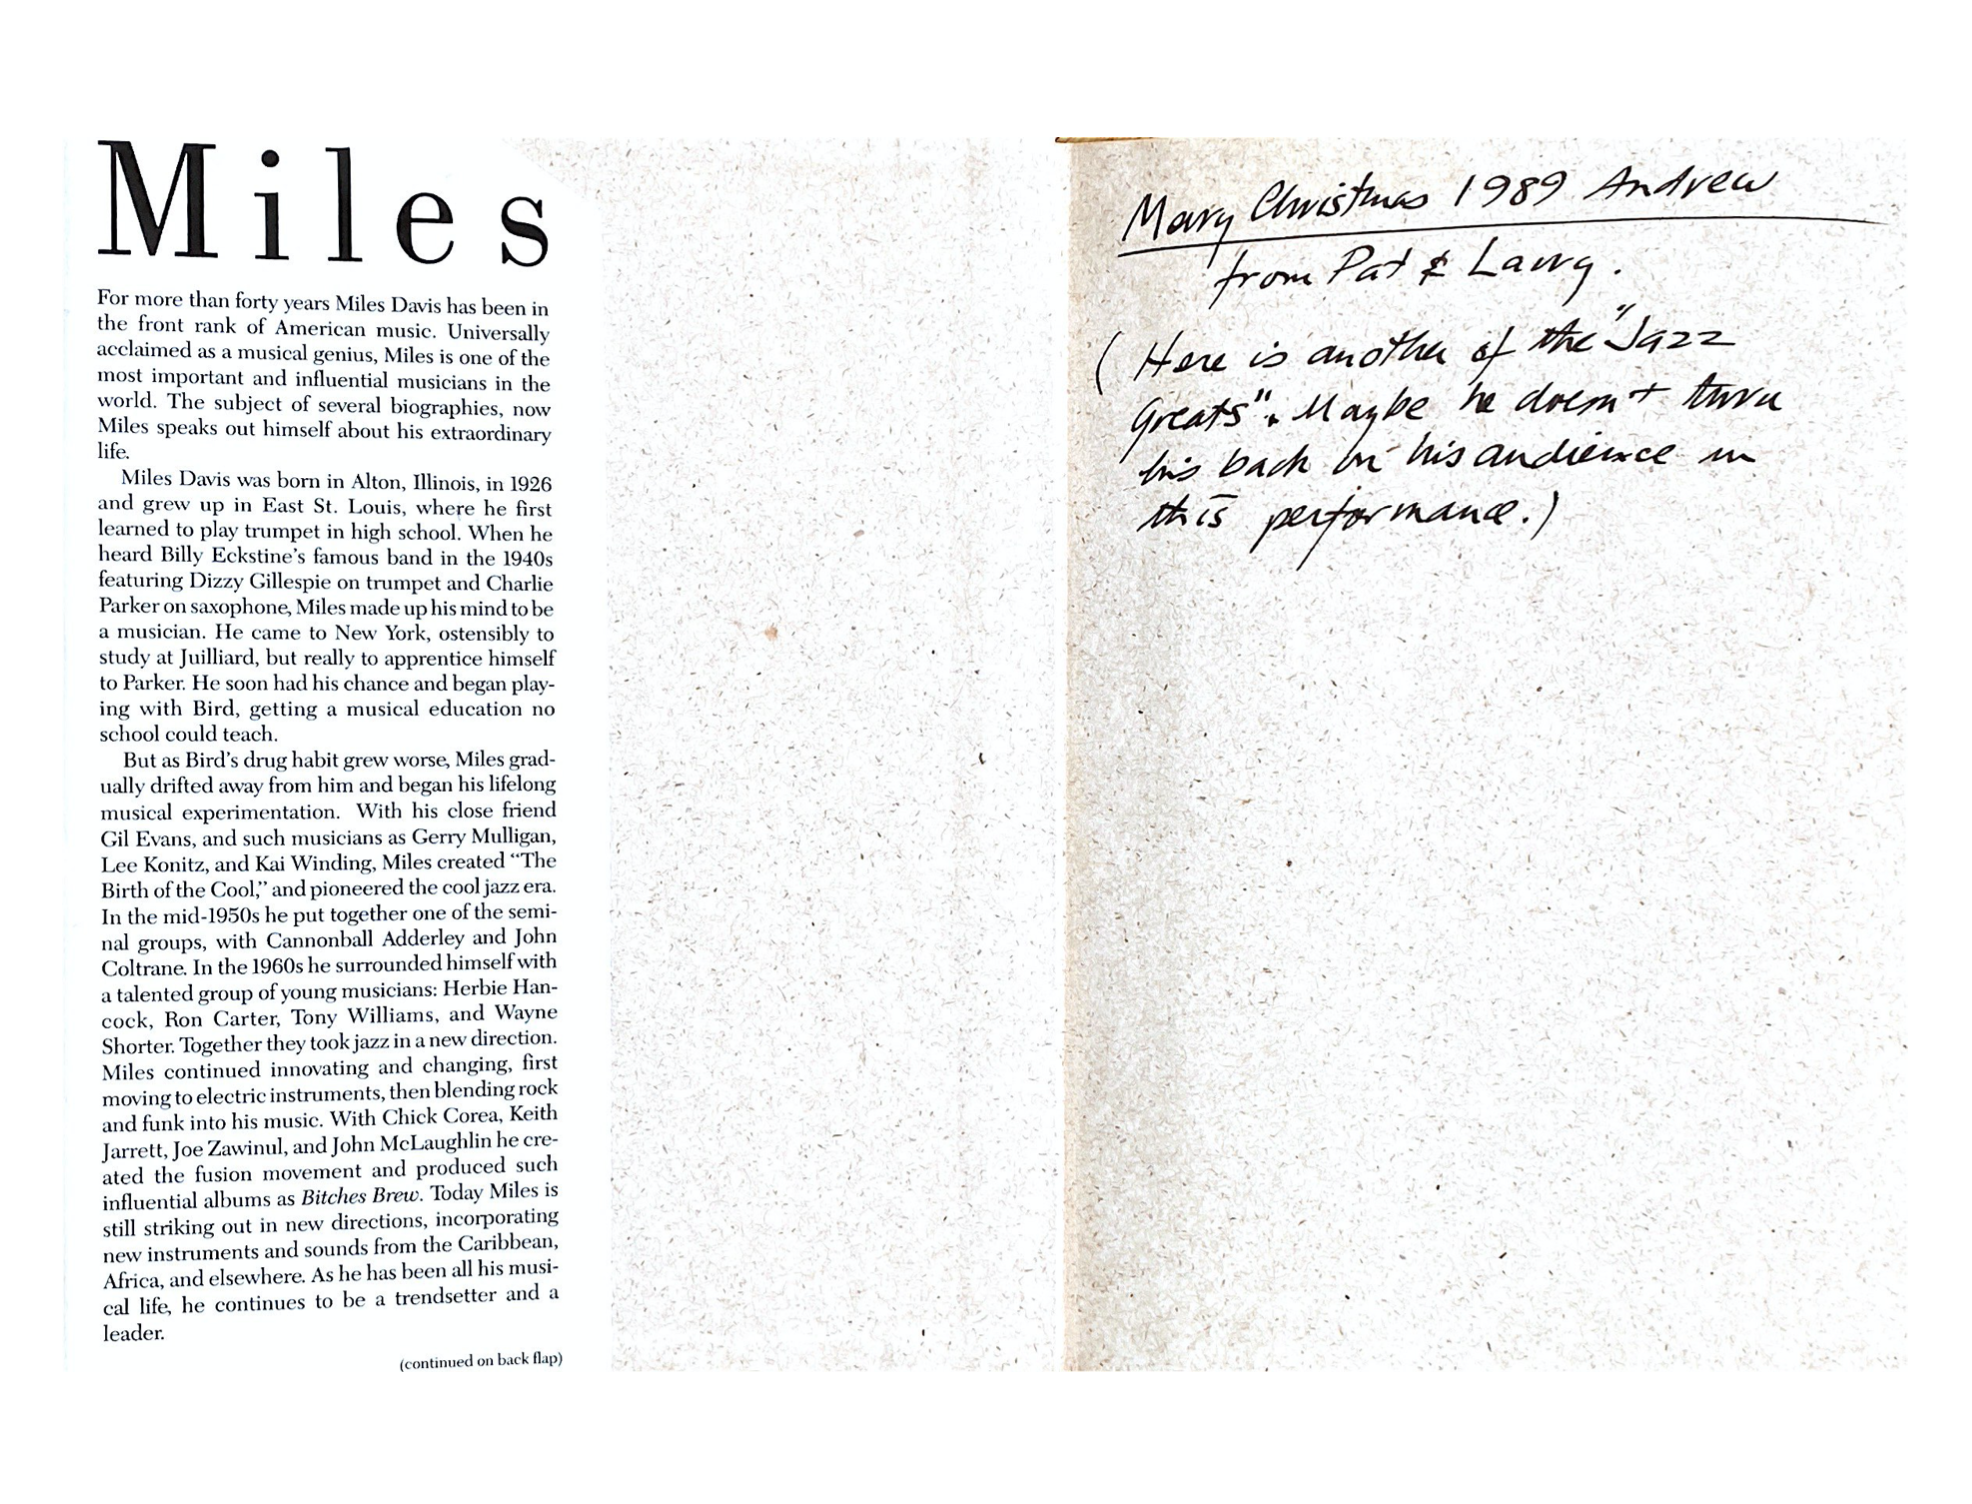 Miles
For more than forty years Miles Davis has been in
the front rank of American music. Universally
acclaimed as a musical genius, Miles is one of the
most important and influential musicians in the
world. The subject of several biographies, now
Miles speaks out himself about his extraordinary
life.
Miles Davis was born in Alton, Illinois, in 1926
and grew up in East St. Louis, where he first
learned to play trumpet in high school. When he
heard Billy Eckstine's famous band in the 1940s
featuring Dizzy Gillespie on trumpet and Charlie
Parker on saxophone, Miles made up his mind to be
a musician. He came to New York, ostensibly to
study at Juilliard, but really to apprentice himself
to Parker. He soon had his chance and began play-
ing with Bird, getting a musical education no
school could teach.
But as Bird's drug habit grew worse, Miles grad-
ually drifted away from him and began his lifelong
musical experimentation. With his close friend
Gil Evans, and such musicians as Gerry Mulligan,
Lee Konitz, and Kai Winding, Miles created “The
Birth of the Cool,” and pioneered the cool jazz era.
In the mid-1950s he put together one of the semi-
nal groups, with Cannonball Adderley and John
Coltrane. In the 1960s he surrounded himself with
a talented group of young musicians: Herbie Han-
cock, Ron Carter, Tony Williams, and Wayne
Shorter. Together they took jazz in a new direction.
Miles continued innovating and changing, first
moving to electric instruments, then blending rock
and funk into his music. With Chick Corea, Keith
Jarrett, Joe Zawinul, and John McLaughlin he cre-
ated the fusion movement and produced such
influential albums as Bitches Brew. Today Miles is
still striking out in new directions, incorporating
new instruments and sounds from the Caribbean,
Africa, and elsewhere. As he has been all his musi-
cal life, he continues to be a trendsetter and a
leader.
(continued on back flap)
Mary Christmas 1989 Andrew
from Pat & Larry.
(Here is another of the "Jazz
Greats". Maybe he doesn't turn
his back on his audience in
this performance.)